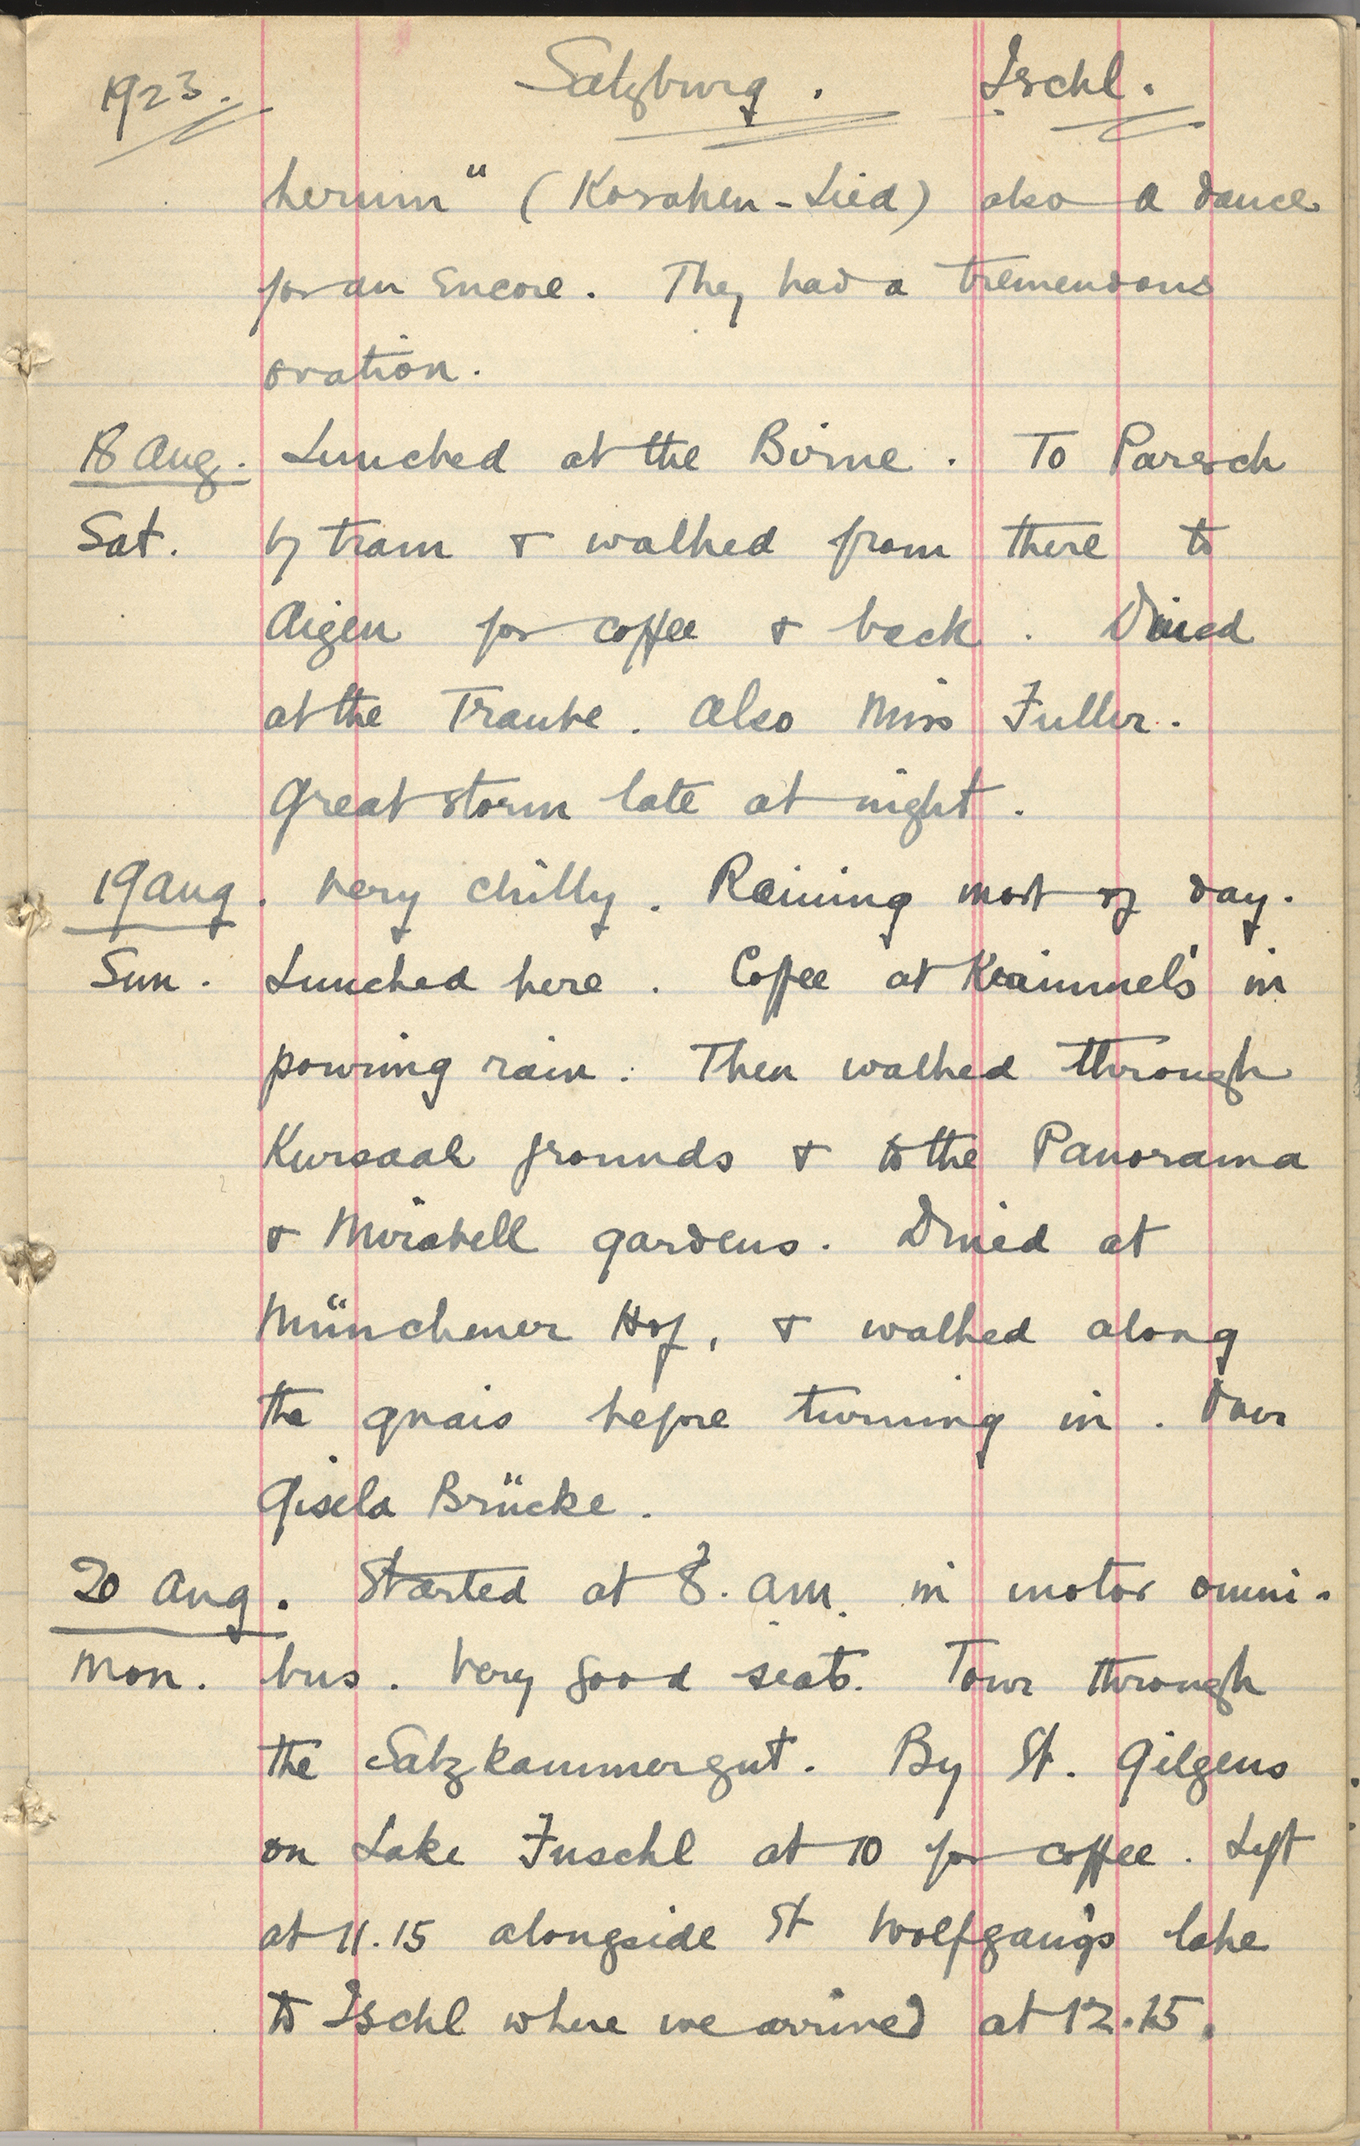 1923. Salzburg. Ischl.
herum" (Kosaken-Lied) also a dance
for an encore. They had a tremendous
ovation.
18 Aug. Lunched at the Birne. To Parsch
Sat. by tram & walked from there to
Aigen for coffee & back. Dined
at the Traube. Also Miss Fuller.
Great storm late at night.
19 Aug. Very chilly. Raining most of day.
Sun. Lunched here. Coffee at Krimmel's in
pouring rain. Then walked through
Kursaal grounds & to the Panorama
& Mirabell gardens. Dined at
Münchener Hof, & walked along
the quais before turning in. Over
Gisela Brücke.
20 Aug. Started at 8. am. in motor omni-
Mon. bus. Very good seats. Tour through
the Salzkammergut. By St. Gilgens
on Lake Fuschl at 10 for coffee. Left
at 11.15 alongside St Wolfgang's lake
to Ischl where we arrived at 12.15.